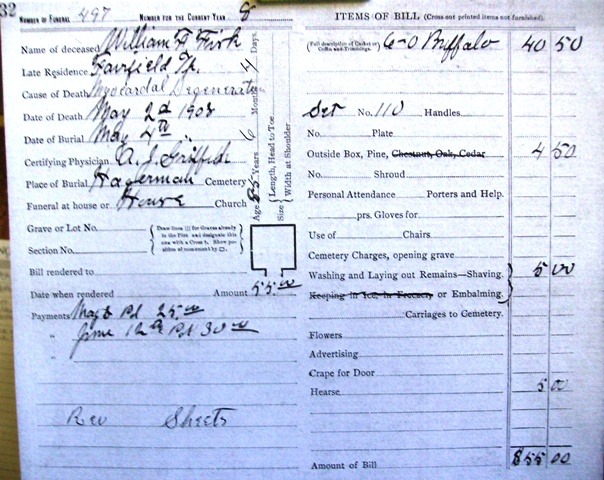 32
NUMBER OF FUNERAL 497 NUMBER FOR THE CURRENT YEAR 8
Name of deceased William F. Firk
Late Residence Fairfield Tp.
Cause of Death Myocardal Degeneration
Date of Death May 2d 1908
Date of Burial May 4th "
Certifying Physician A. J. Griffith
Place of Burial Hagerman Cemetery
Funeral at house or House Church
Age 55 Years 6 Months 4 Days.
Size { Length, Head to Toe
Width at Shoulder
Grave or Lot No.
Section No.
{ Draw lines ||| for Graves already in the Plot and designate this one with a Cross †. Show position of monument by □. }
Bill rendered to
Date when rendered Amount 55.00
Payments May 8 Pd 25.00
" June 12th Pd 30.00
"
Rev Sheets
ITEMS OF BILL (Cross out printed items not furnished).
(Full description of Casket or Coffin and Trimmings. 6-0 Buffalo 40 50
Set No. 110 Handles
No. Plate
Outside Box, Pine, Chestnut, Oak, Cedar 4 50
No. Shroud
Personal Attendance Porters and Help.
prs. Gloves for
Use of Chairs
Cemetery Charges, opening grave
Washing and Laying out Remains—Shaving. } 5 00
Keeping in Ice, in Freezer, or Embalming. }
Carriages to Cemetery.
Flowers
Advertising
Crape for Door
Hearse 5 00
Amount of Bill $55 00